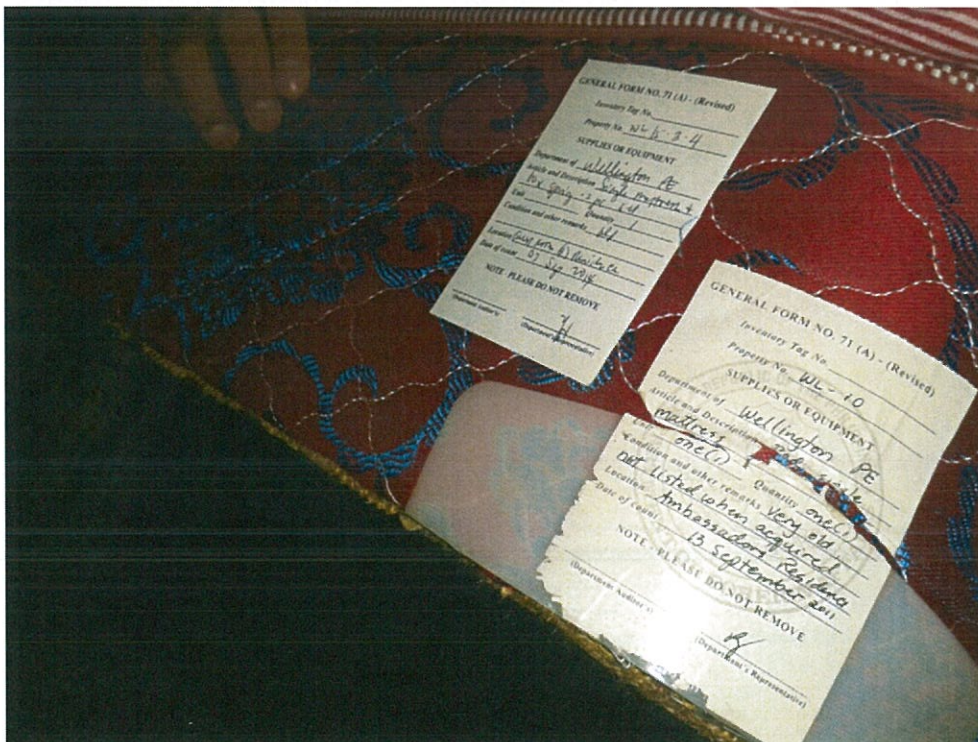 GENERAL FORM NO. 71 (A) - (Revised)
Inventory Tag No.
Property No.
SUPPLIES OR EQUIPMENT
Department of Wellington PE
Article and Description Single mattress &
Box Spring
Unit Quantity 1
Condition and other remarks old
Location Residence
Date of count 07 Sep
NOTE - PLEASE DO NOT REMOVE
(Department Auditor's)
(Department's Representative)
GENERAL FORM NO. 71 (A) - (Revised)
Inventory Tag No.
Property No. WL-10
SUPPLIES OR EQUIPMENT
Department of Wellington PE
Article and Description
mattress
Unit one(1) Quantity one(1)
Condition and other remarks Very old
not listed when acquired
Location Ambassadors Residence
Date of count 13 September 2011
NOTE - PLEASE DO NOT REMOVE
(Department Auditor's)
(Department's Representative)